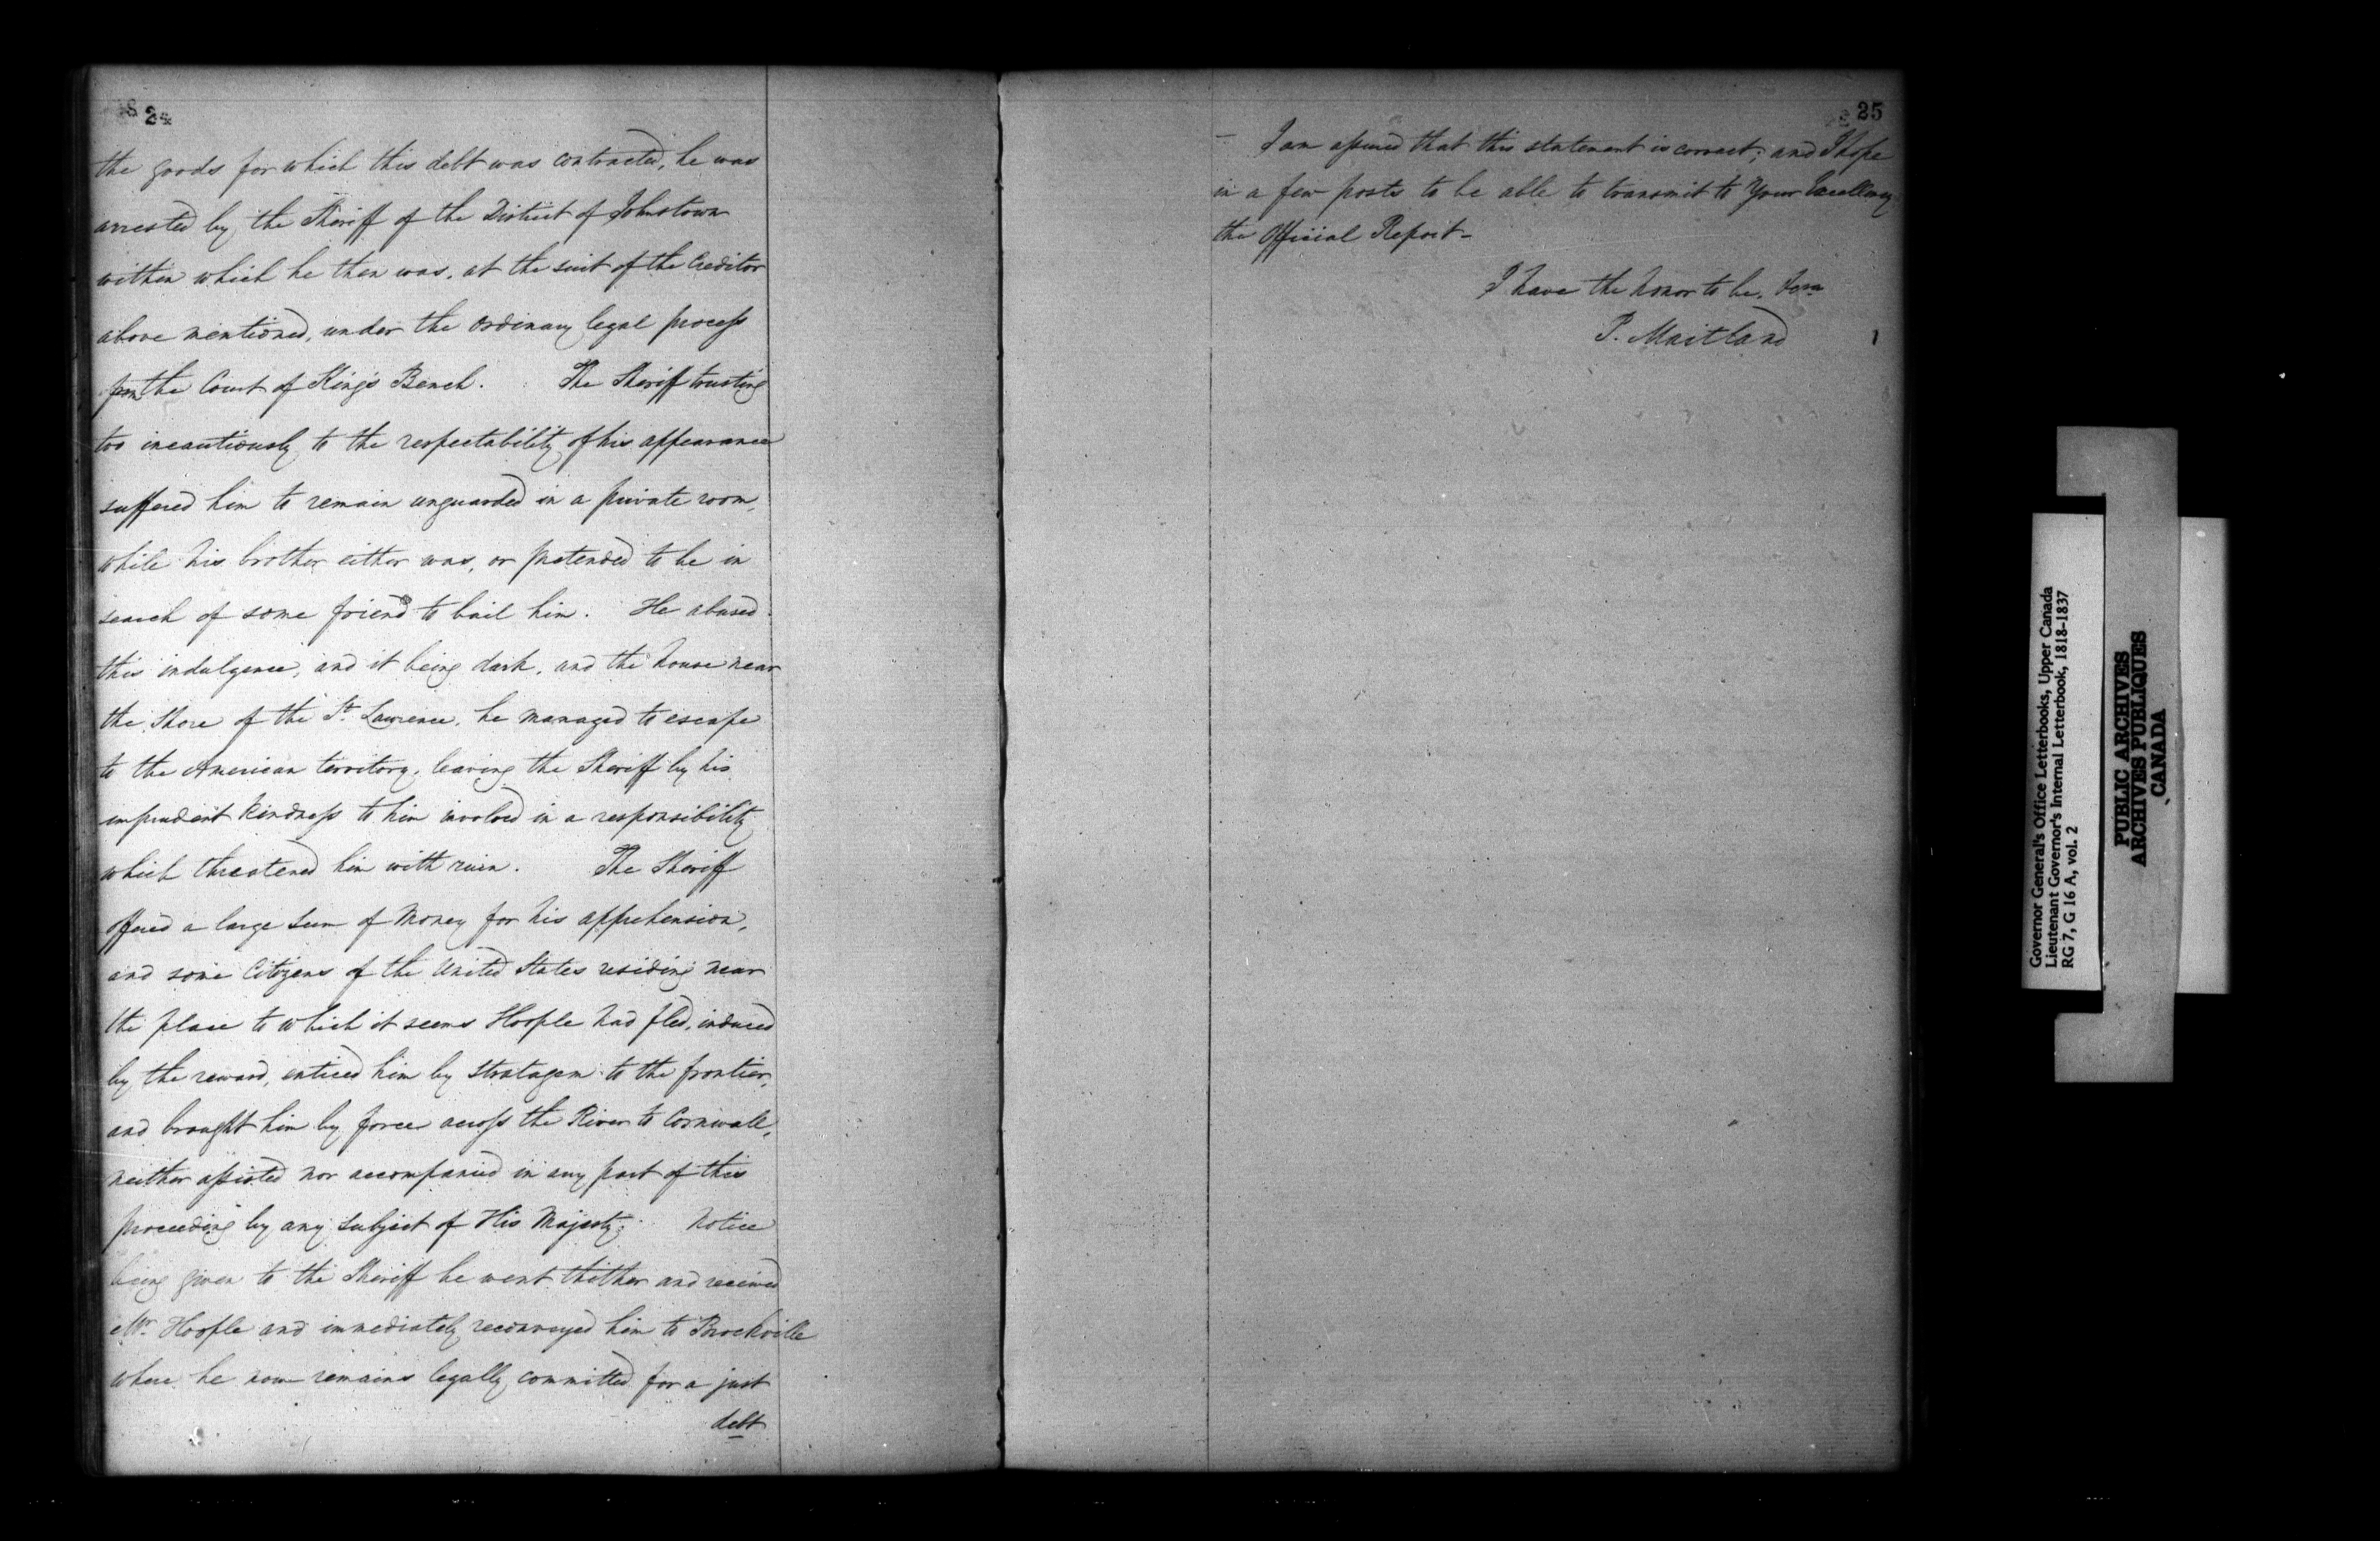 24
the goods for which this debt was contracted, he was
arrested by the Sheriff of the District of Johnstown
within which he then was, at the suit of the Creditor
above mentioned, under the ordinary legal process
from the Court of King's Bench. The Sheriff trusting
too incautiously to the respectability of his appearance
suffered him to remain unguarded in a private room,
while his brother either was, or pretended to be in
search of some friend to bail him. He abused
this indulgence, and it being dark, and the house near
the Shore of the St. Lawrence, he managed to escape
to the American territory, leaving the Sheriff by his
imprudent kindness to him involved in a responsibility
which threatened him with ruin. The Sheriff
offered a large Sum of Money for his apprehension,
and some Citizens of the United States residing near
the place to which it seems Hoople had fled, induced
by the reward, enticed him by Stratagem to the frontier,
and brought him by force across the River to Cornwall,
neither assisted nor accompanied in any part of this
proceeding by any Subject of His Majesty. Notice
being given to the Sheriff he went thither and received
Mr. Hoople and immediately reconveyed him to Brockville
where he now remains legally committed for a just
debt
25
– I am assured that this statement is correct; and I hope
in a few posts to be able to transmit to Your Excellency
the Official Report –
I have the honor to be,
P. Maitland
Governor General's Office Letterbooks, Upper Canada
Lieutenant Governor's Internal Letterbook, 1818-1837
RG 7, G 16 A, vol. 2
PUBLIC ARCHIVES
ARCHIVES PUBLIQUES
CANADA